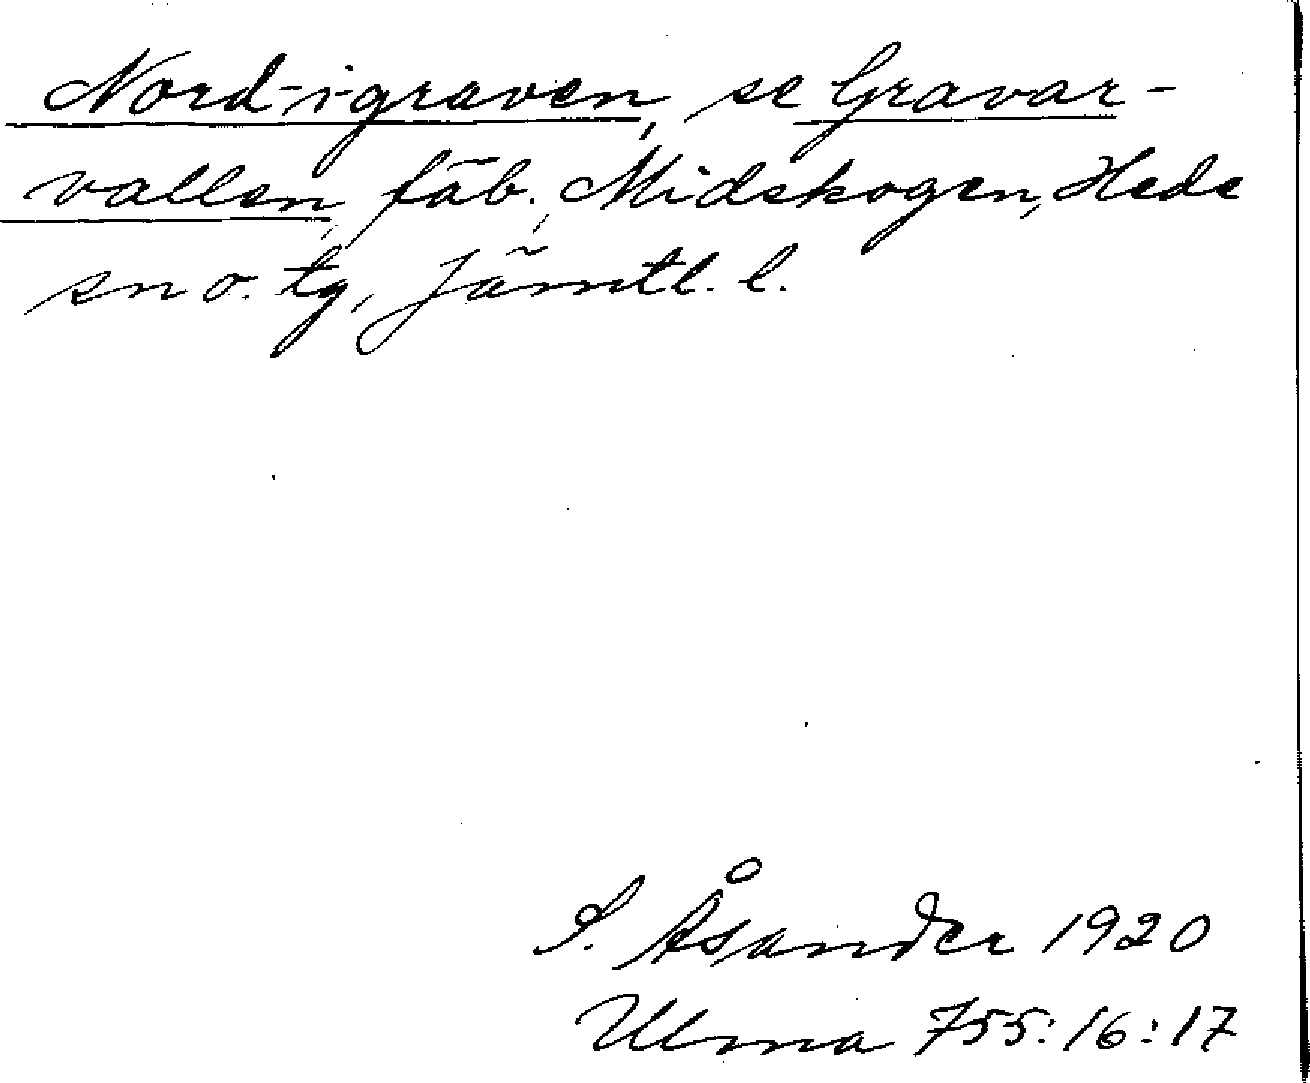 Nord-i-graven, se Gravar-
vallen, fäb., Midskogen, Hede
sn o. tg, Jämtl. l.
S. Åsander 1920
Ulma 755:16:17